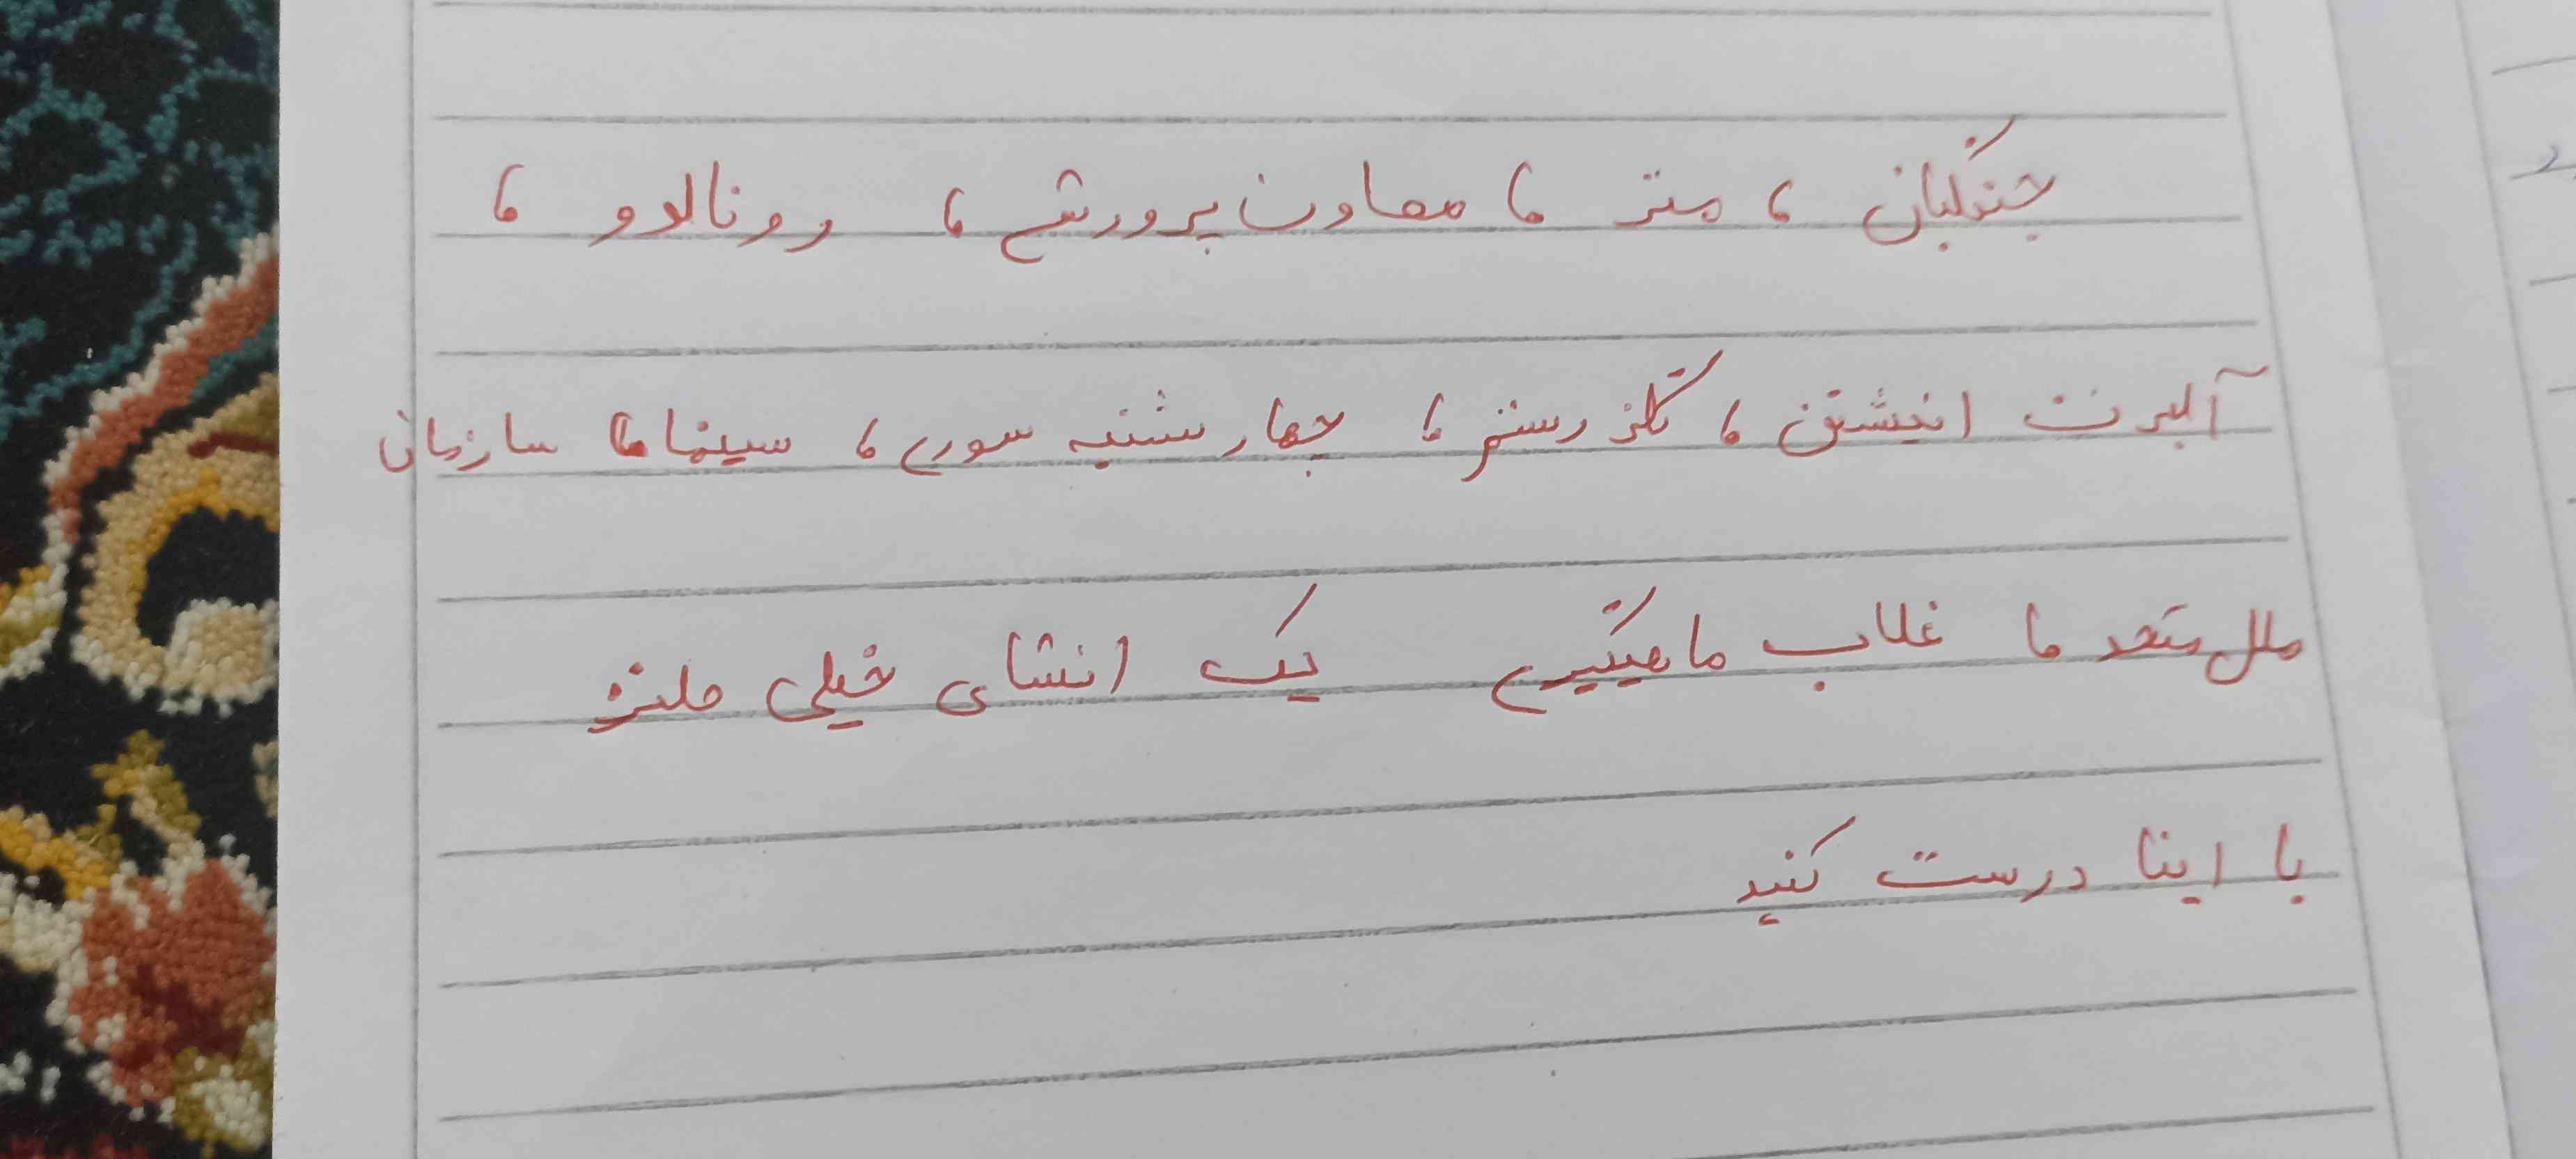 جنگلبان ، متر ، معاون پرورشی ، رونالدو ،
آلبرت انیشتن ، گرز رستم ، چهارشنبه سوری ، سینما ، سازمان
ملل متحد ، غلاب ماهیگیری یک انشای خیلی طنز
با اینا درست کنید